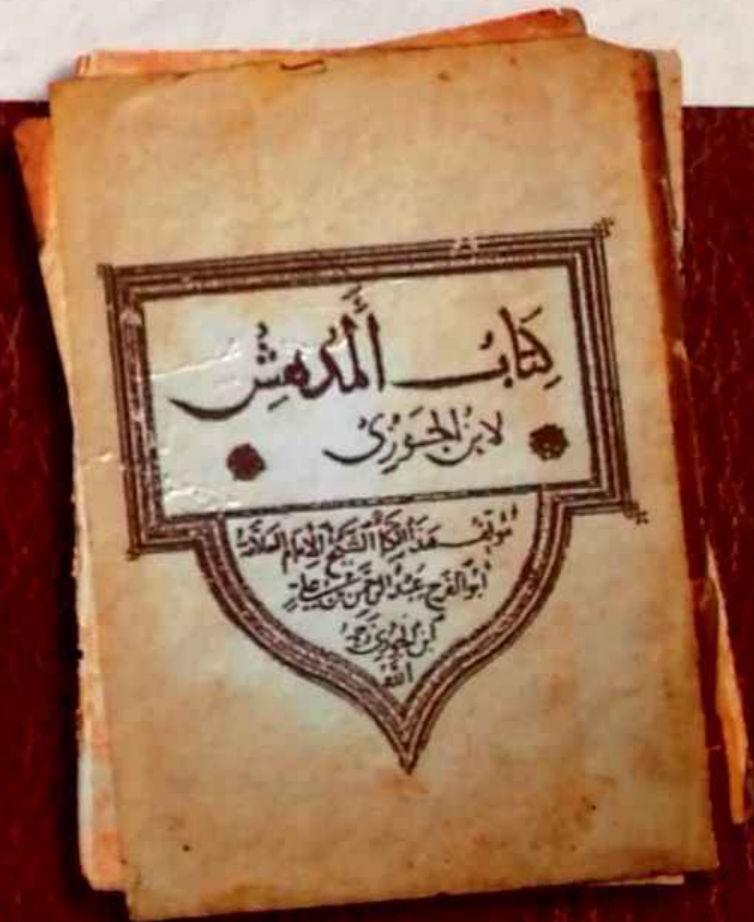 كِتَابُ اَلْمُدهِشِ
لابن الجَوزِى
مؤلف هذا الكتاب الشيخ الإمام العلامة
ابو الفرج عبد الرحمن بن علي
ابن الجوزي رحمه
الله